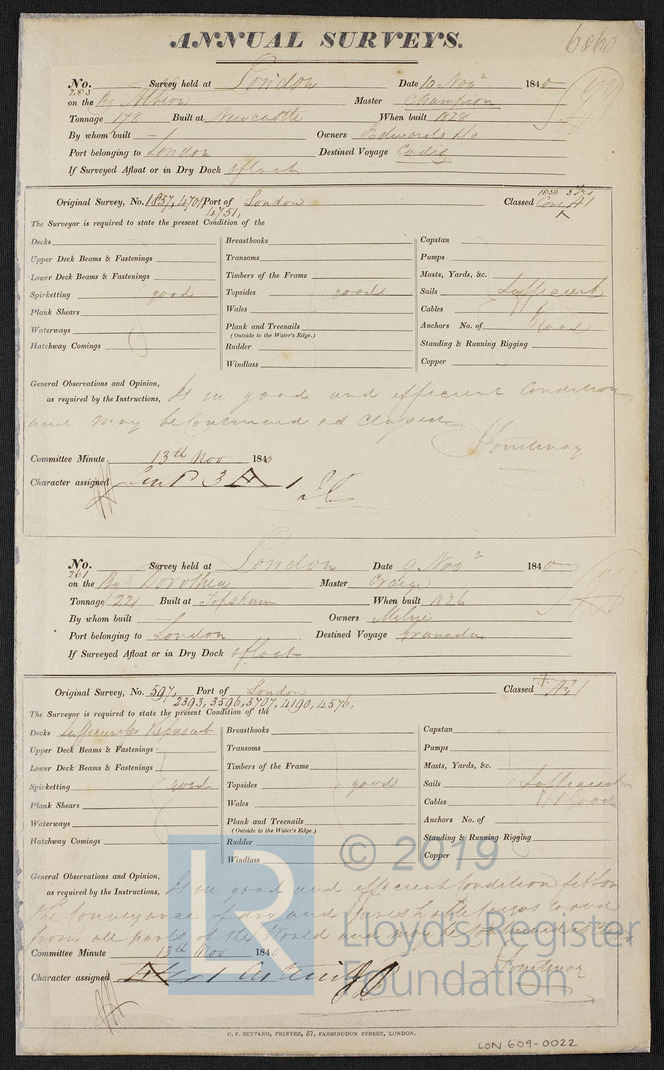 ANNUAL SURVEYS. 6860
No. 283 Survey held at London Date 10 Nov 1840
on the Bg Albion Master Champion
Tonnage 178 Built at Newcastle When built 1828
By whom built - Owners Edwards &Co
Port belonging to London Destined Voyage Cadiz
If Surveyed Afloat or in Dry Dock afloat
Original Survey, No. 1857, 4701, Port of London Classed 1838 3 Yrs Cont A1
4751,
The Surveyor is required to state the present Condition of the
Decks Breasthooks Capstan
Upper Deck Beams & Fastenings Transoms Pumps
Lower Deck Beams & Fastenings Timbers of the Frame Masts, Yards, &c.
Spirketting good Topsides good Sails Sufficient
Plank Shears Wales Cables
Waterways Plank and Treenails Anchors No. of Good
(Outside to the Water's Edge.)
Hatchway Comings Rudder Standing & Running Rigging
Windlass Copper
General Observations and Opinion, Is in good and efficient Condition
as required by the Instructions, and may be Continued as Classed
Committee Minute 13th Nov 1840
Character assigned 3 A 1
No. 261 Survey held at London Date 9 Nov 1840
on the Bg Dorothea Master Craige
Tonnage 221 Built at Topsham When built 1826
By whom built Owners Milne
Port belonging to London Destined Voyage Grenada
If Surveyed Afloat or in Dry Dock afloat
Original Survey, No. 597, Port of London Classed Æ1
2393, 3596, 3707, 4190, 4576,
The Surveyor is required to state the present Condition of the
Decks Breasthooks Capstan
Upper Deck Beams & Fastenings Transoms Pumps
Lower Deck Beams & Fastenings Timbers of the Frame Masts, Yards, &c.
Spirketting good Topsides good Sails Sufficient
Plank Shears Wales Cables Good
Waterways Plank and Treenails Anchors No. of
(Outside to the Water's Edge.)
Hatchway Comings Rudder Standing & Running Rigging
Windlass Copper
General Observations and Opinion, Is in good and efficient Condition fit for
as required by the Instructions, the Conveyance of dry and perishable cargoes to and
from all parts of the World and may be Continued as
Committee Minute 13th Nov 1840
Character assigned
C. F. SEYFANG, PRINTER, 57, FARRINGDON STREET, LONDON.
LON 609-0022
LR © 2019
Lloyd's Register
Foundation